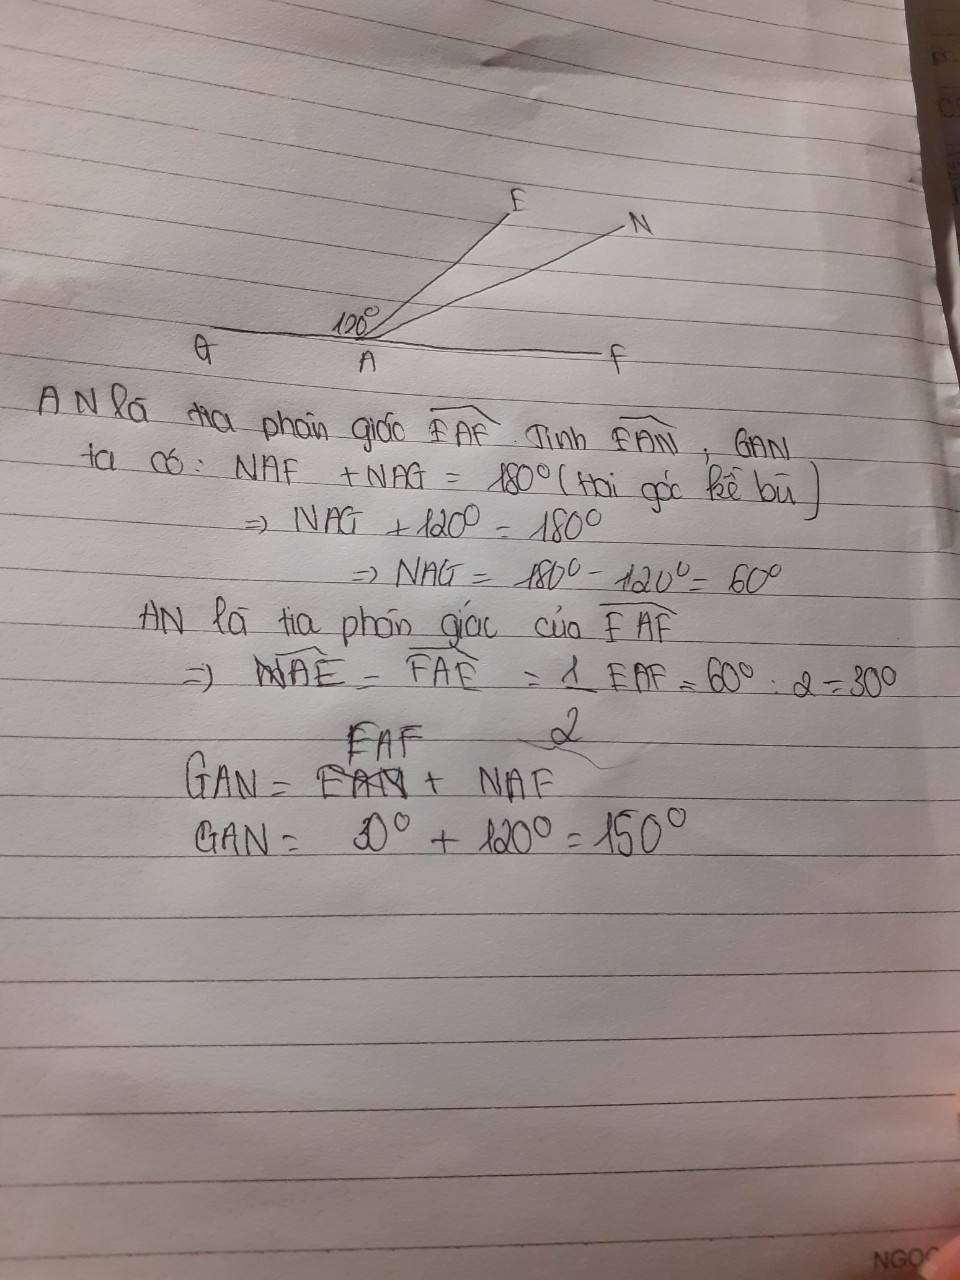 E
N
120°
G
A
F
AN là tia phân giác EAF. Tính EAN, GAN
ta có: NAF + NAG = 180° (Hai góc kề bù)
=> NAG + 120° = 180°
=> NAG = 180° - 120° = 60°
AN là tia phân giác của EAF
=> NAE = FAE = 1/2 EAF = 60° : 2 = 30°
EAF
GAN = EAN + NAF
GAN = 30° + 120° = 150°
NGOC